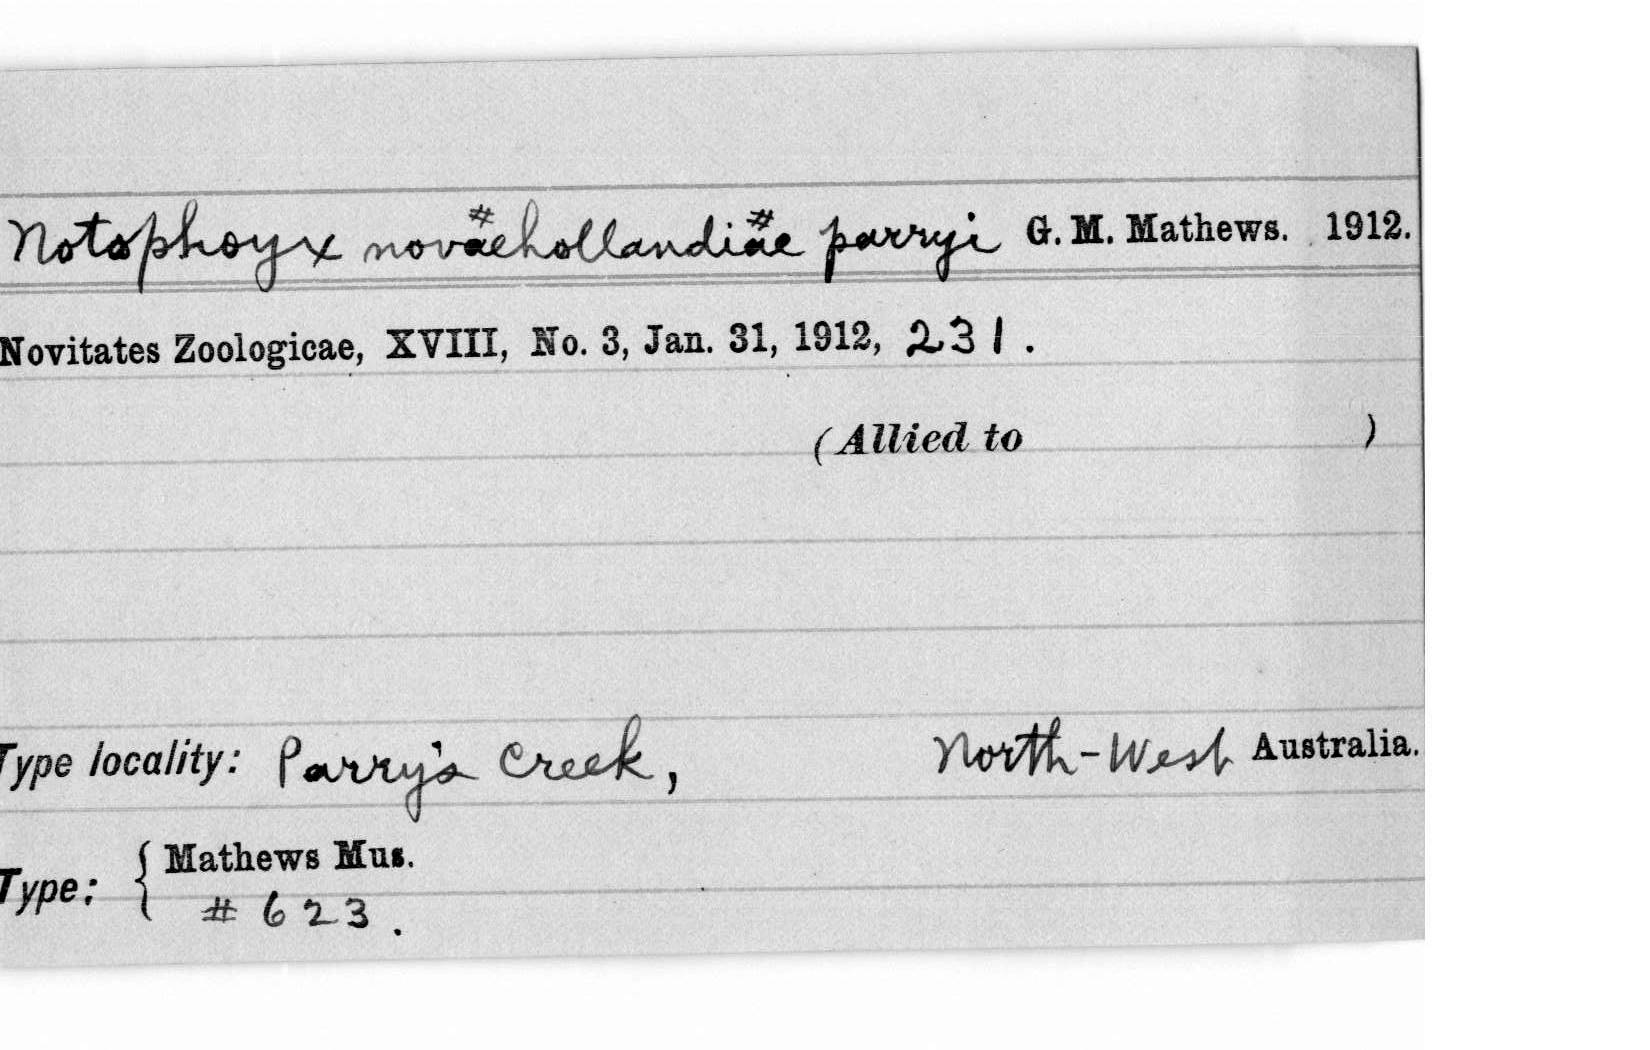 Notophoyx novaehollandiae parryi G. M. Mathews. 1912.
Novitates Zoologicae, XVIII, No. 3, Jan. 31, 1912, 231.
(Allied to )
Type locality: Parry's Creek, North-West Australia.
Type: { Mathews Mus.
# 623.